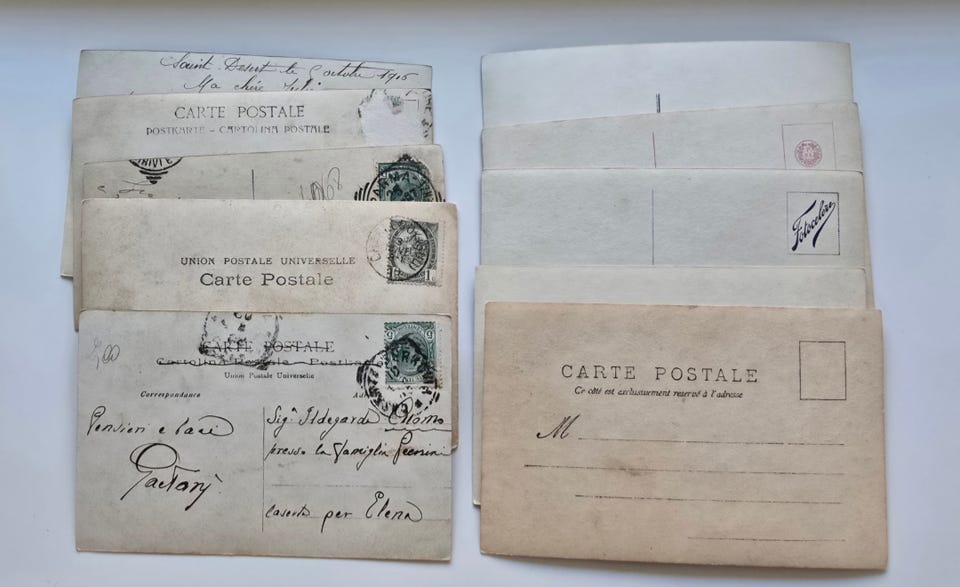 Saint Désert le 6 octobre 1916
Ma chère
CARTE POSTALE
POSTKARTE – CARTOLINA POSTALE
1968
PARMA
1
UNION POSTALE UNIVERSELLE
Carte Postale
5 5
CARTE POSTALE
Cartolina Postale - Postkar
Union Postale Universelle
Correspondance
Ad
Pensieri e baci
Gaetano
Sigª Ildegarda
presso la famiglia
Caserta per Elena
Fotocelere
CARTE POSTALE
Ce côté est exclusivement réservé à l'adresse
M